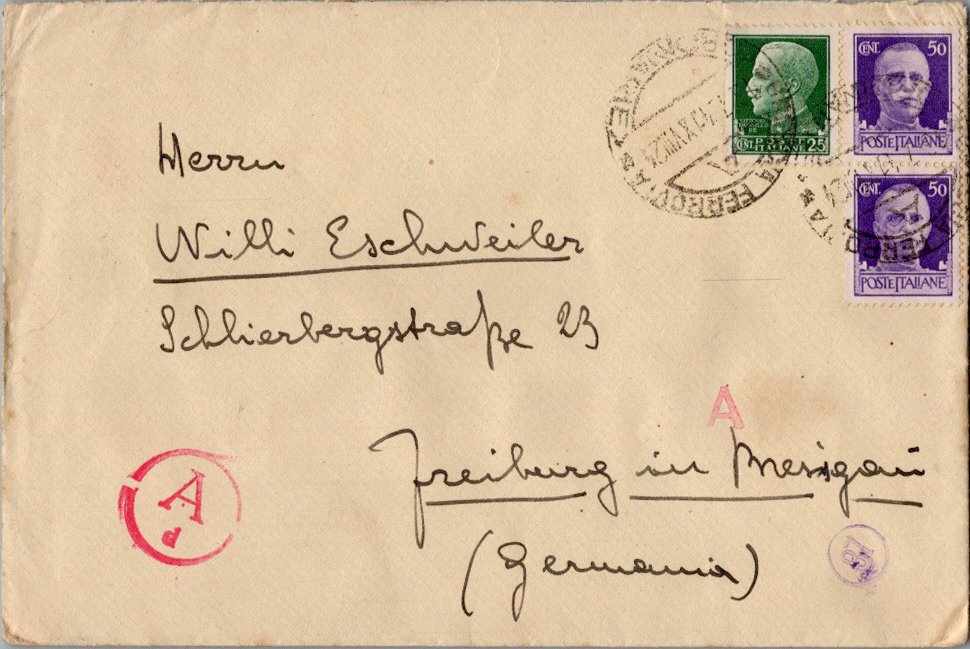 CENT. 50
POSTE ITALIANE
CENT. POSTE ITALIANE 25
CENT. 50
POSTE ITALIANE
FERROVIA
Herrn
Willi Eschweiler
Schlierbergstraße 23
A
Freiburg in Breisgau
(Germania)
A
d